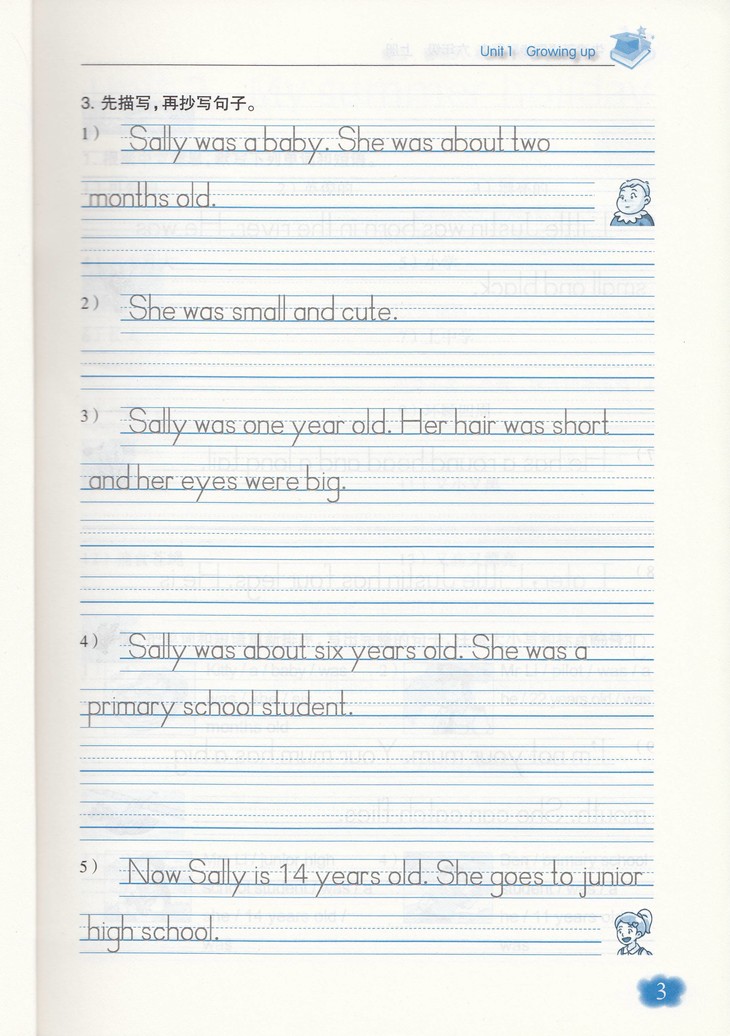 Unit 1 Growing up
3. 先描写,再抄写句子。
1) Sally was a baby. She was about two
months old.
2) She was small and cute.
3) Sally was one year old. Her hair was short
and her eyes were big.
4) Sally was about six years old. She was a
primary school student.
5) Now Sally is 14 years old. She goes to junior
high school.
3